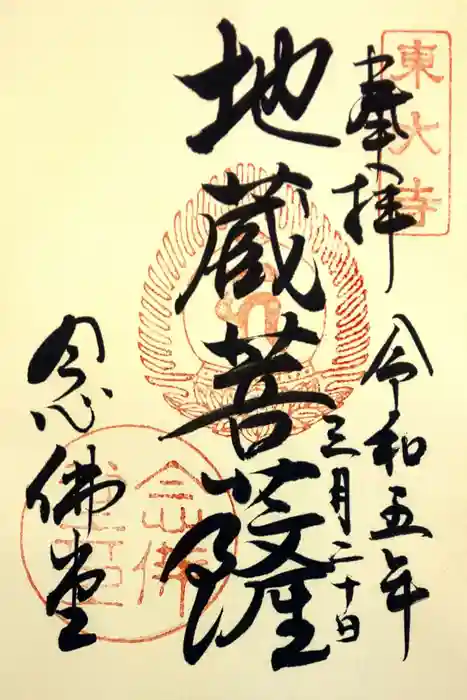 東大寺
奉拝
令和五年
三月二十日
地蔵菩薩
念佛堂